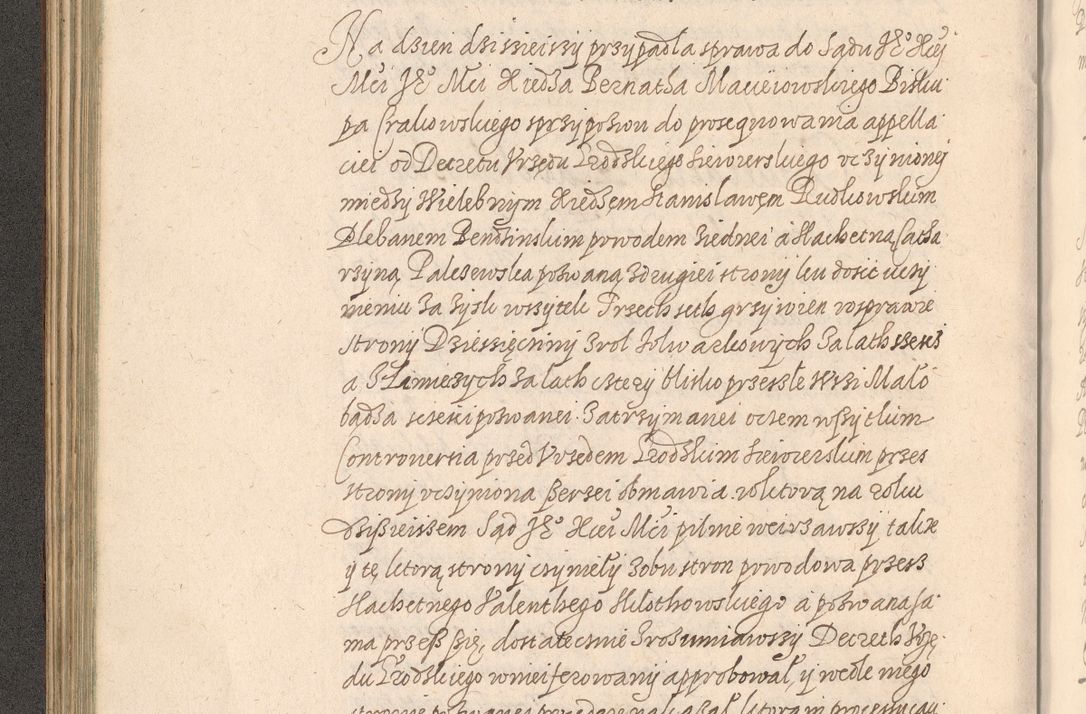 Na dzien dzisieiszy przypadła sprawa do Sądu Je° Xcei
Mci Je° Mci Xiedza Bernatha Macieiowskiego Bisku
pa Crakowskiego sprzypozwu do prosequowania appella
ciei od Decretu Vrzędu Grodzkiego Siewierskiego vczynioney
miedzy Wielebnym Xiedzem Stanisławem Rudkowskim
Plebanem Bendzinskim powodem ziednei a Slachetną Catha
rzyną Paleszewską pozwaną zdrugiei strony ku dosic uczy
nieniu za zysk wszytek Trzech seth grzywien wsprawie
strony Dziesięciny zrol folwarkowych za lath szesc
a Stanieczych za lath cztery blisko przeszłe Wsi Mało
bądza sciezki pozwanei zatrzymanei oczem wszytkim
Controversia przed Vrzedem Grodzkim Siewierskim przes
strony vczyniona szerzei obmawia, wktorą na roku
dzisieiszem Sąd Je° Xcei Mci pilnie weirzawszy takze
y tę ktorą strony czyniely zobu stron powodowa przess
Slachetnego Valenthego Młothowskiego a pozwana sa
ma przess się, dostatecznie zrozumiawszy Decreth Vrzę
du Grodzkiego wniei ferowany approbował, y wedle niego